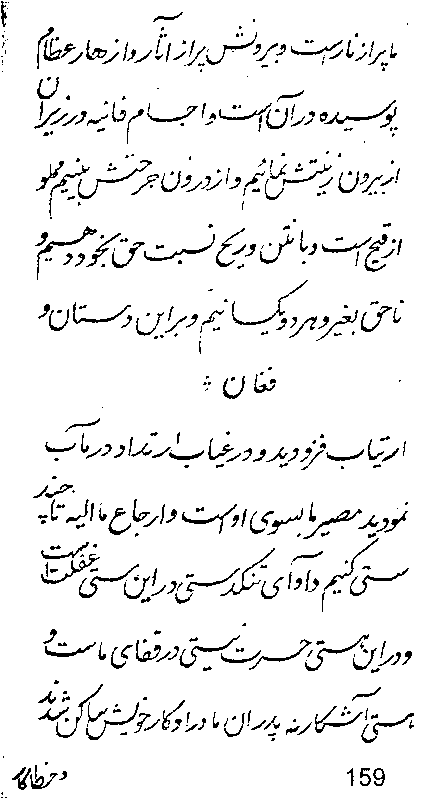 ما پر از نار است و بیرونش پر از آثار و از هار عظام
پوسیده در آن است و اجسام فانیه در زیر آن
از بیرون زینتش نمائیم و از درون جرحتش بینیم مملو
از قیح است و با نتن و ریح نسبت حق بخود دهیم و
ناحق بغیر و هر دو یکسانیم و بر این دستان و
فغان *
ارتیاب فزودید و در غیاب ارتداد در مآب
نمودید مصیر ما بسوی اوست و ارجاع ما الیه تا چند
سستی کنیم و آوای تنگدستی در این سستی غفلت است
و در این هستی حسرت نیستی در قفای ماست و
هستی آشکار نه پدران ما در اوکار خویش ساکن شدند
و خطا کار
159